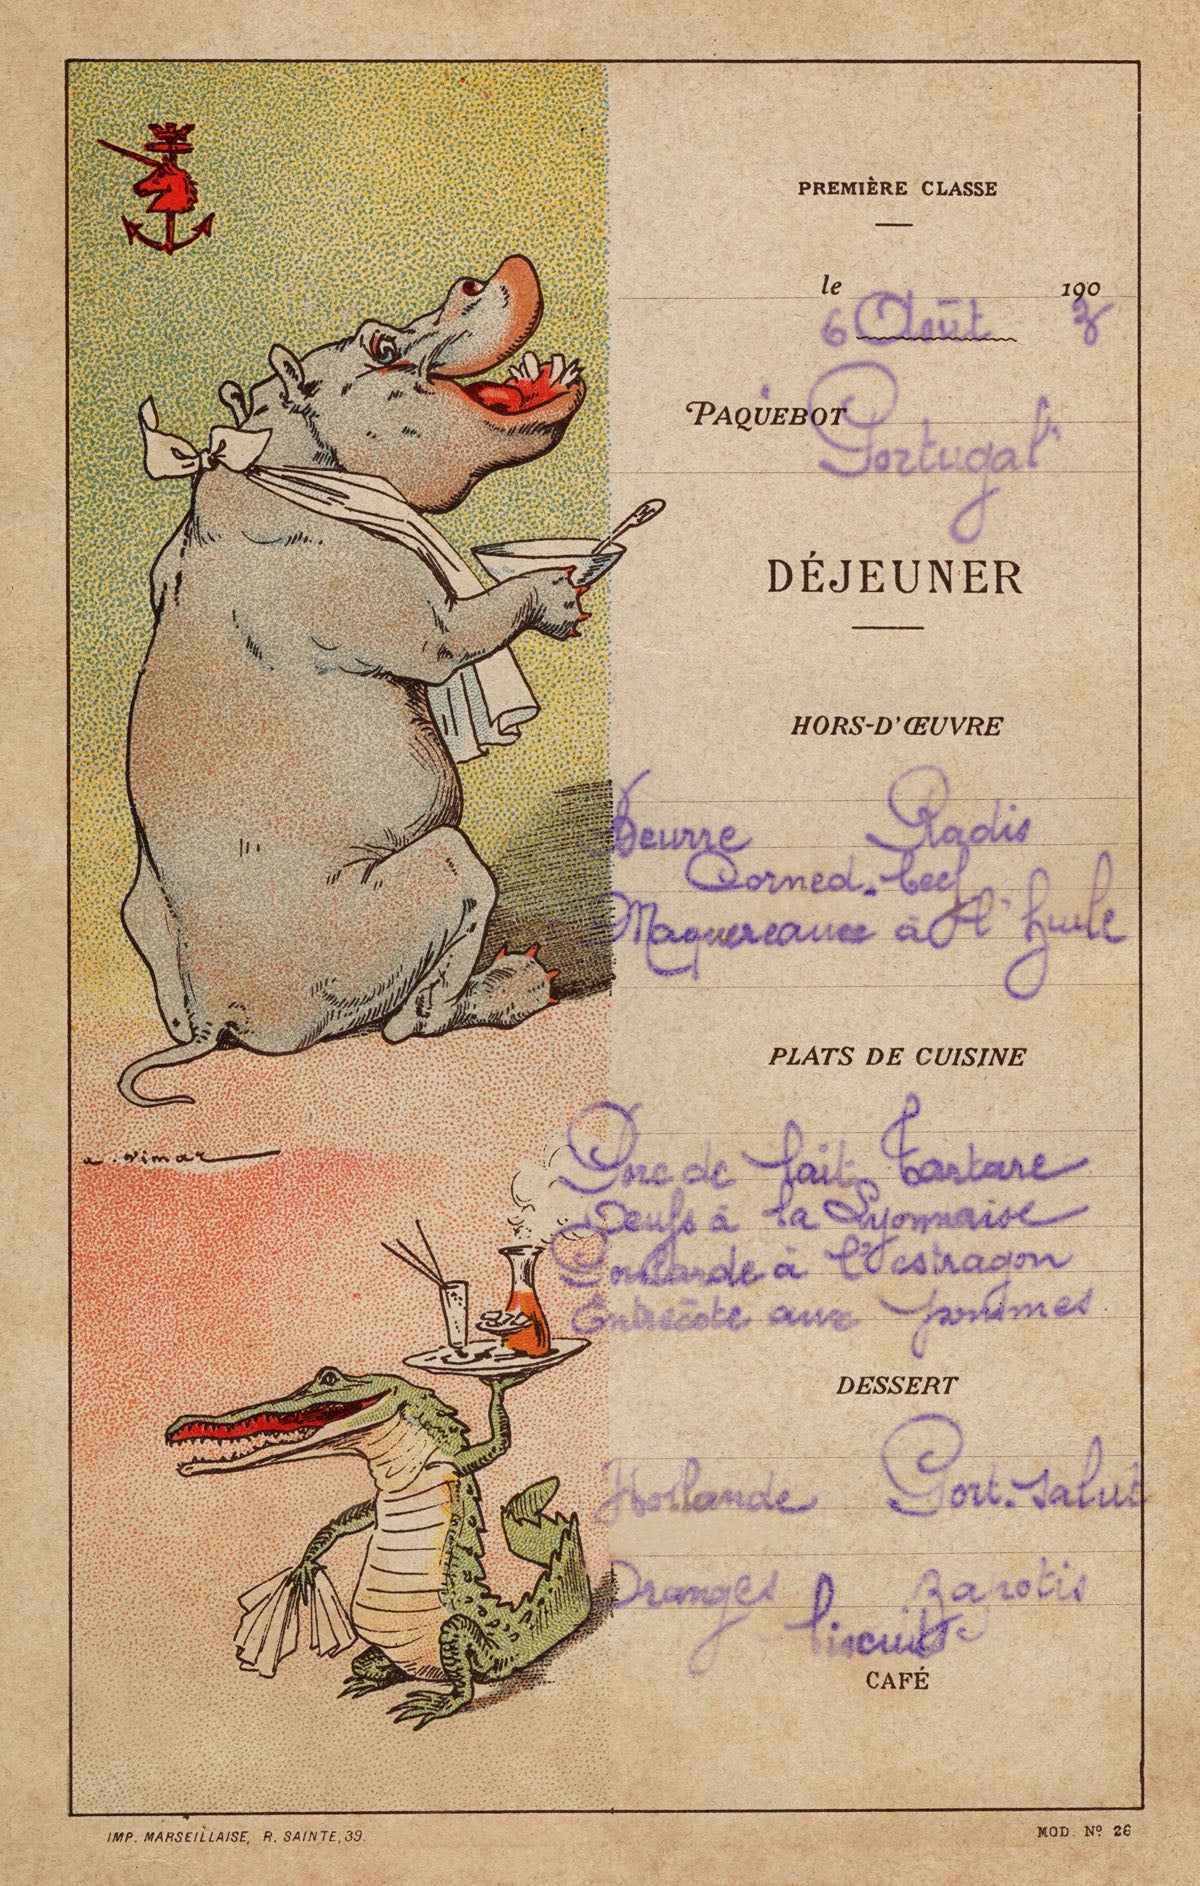 PREMIÈRE CLASSE
le 6 Août 1903
PAQUEBOT Portugal
DÉJEUNER
HORS-D'ŒUVRE
Beurre Radis
Corned-beef
Maquereaux à l'huile
PLATS DE CUISINE
Porc de lait Tartare
Oeufs à la Lyonnaise
Poularde à l'estragon
Entrecôte aux pommes
DESSERT
Hollande Port-Salut
Oranges
biscuits
CAFÉ
a. Vimar
IMP. MARSEILLAISE, R. SAINTE, 39.
MOD. Nº 26